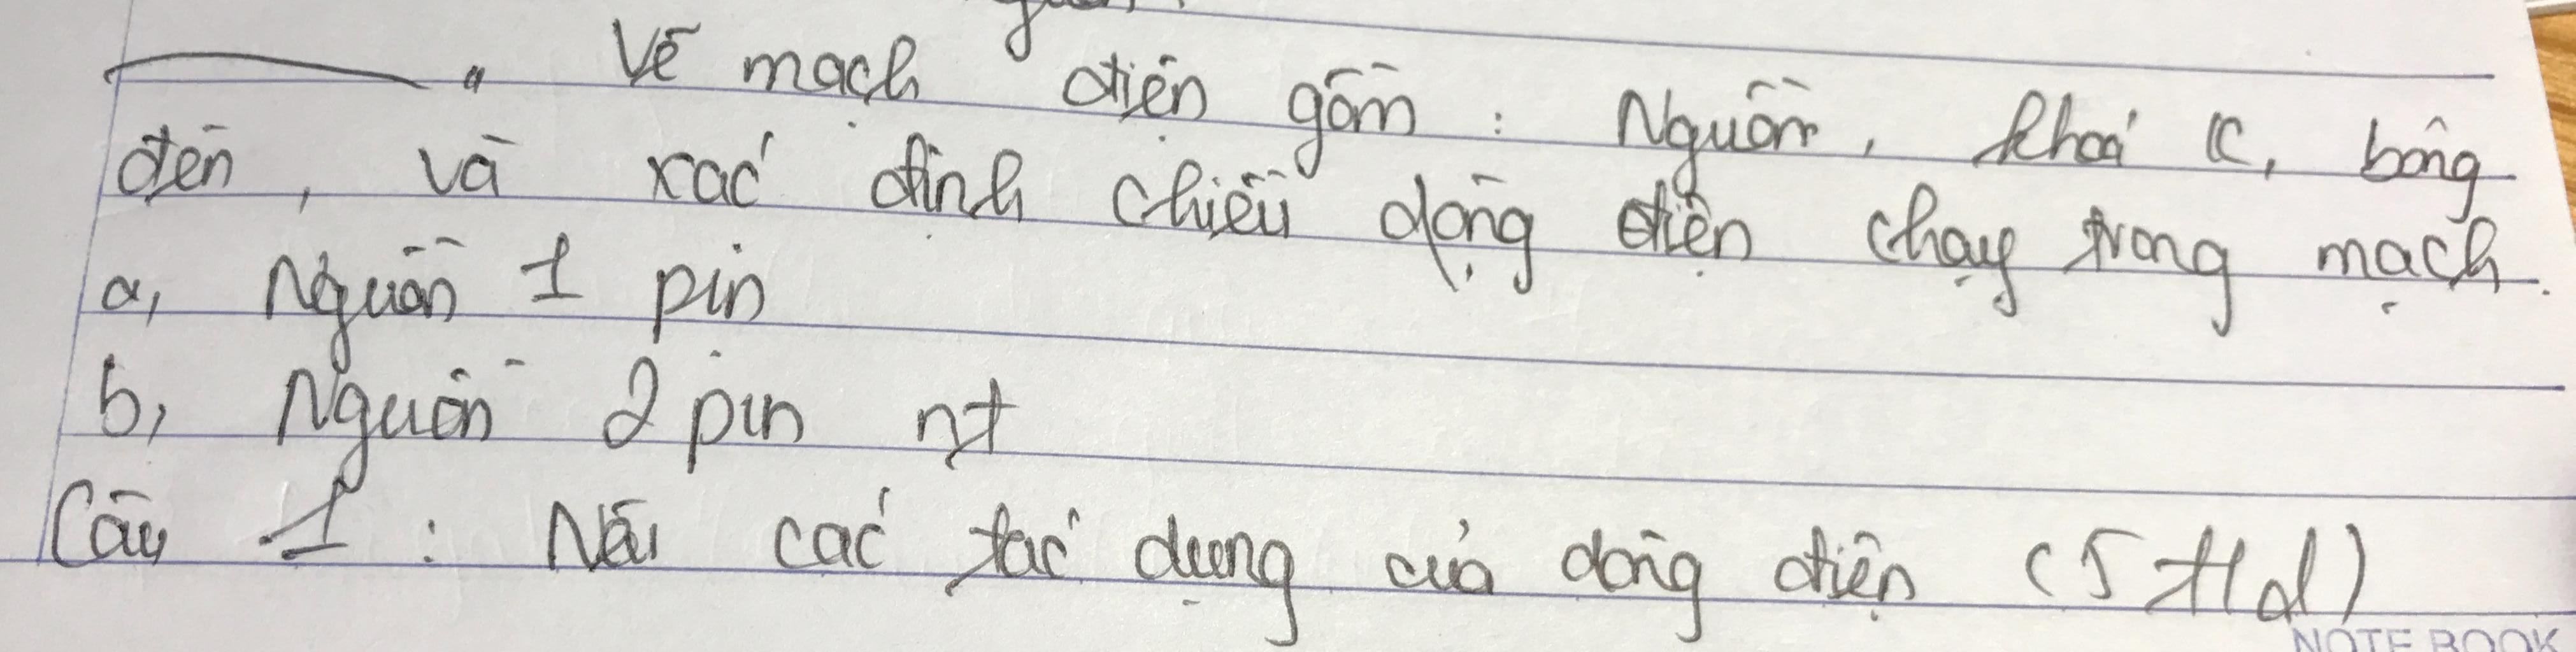 Vẽ mạch điện gồm : Nguồn, khoá K, bóng
đèn, và xác định chiều dòng điện chạy trong mạch.
a, Nguồn 1 pin
b, Nguồn 2 pin nt
Câu 1 : Nêu các tác dụng của dòng điện (5 td)
NOTE BOOK